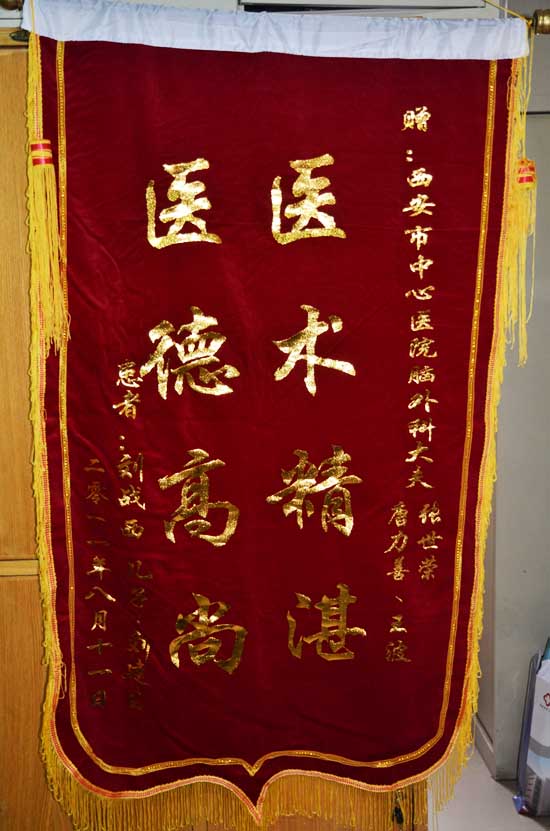 赠：西安市中心医院脑外科大夫
张世荣
唐力善、王波
医术精湛
医德高尚
患者：刘战西 儿子：刘
二零一一年八月十一日